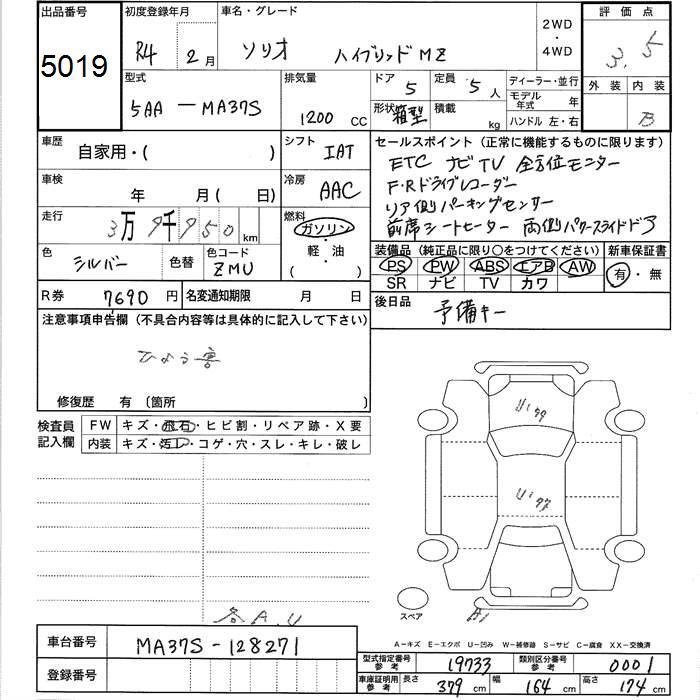 出品番号 初度登録年月 車名・グレード 2WD・4WD 評価点
5019 R4 2月 ソリオ ハイブリッドMZ 3.5
型式 排気量 ドア 5 定員 5人 ディーラー・並行 外装 内装
5AA-MA37S 1200 CC 形状 箱型 積載 kg モデル年式 年 B
ハンドル 左・右
車歴 自家用・( ) シフト IAT セールスポイント(正常に機能するものに限ります)
車検 年 月( 日) 冷房 AAC ETC ナビTV 全方位モニター
F・Rドライブレコーダー
リア側パーキングセンサー
前席シートヒーター 両側パワースライドドア
走行 3万9千950km 燃料 ガソリン・軽・油( )
色 シルバー 色替 色コード ZMU 装備品(純正品に限り○をつけてください) 新車保証書
PS PW ABS エアB AW 有・無
SR ナビ TV カワ
R券 7690円 名変通知期限 月 日 後日品 予備キー
注意事項申告欄(不具合内容等は具体的に記入して下さい)
ひょう害
修復歴 有(箇所 )
検査員記入欄 FW キズ・飛石・ヒビ割・リペア跡・X要
内装 キズ・汚レ・コゲ・穴・スレ・キレ・破レ
U'99
U'99
スペア A1
各A.U
A-キズ E-エクボ U-凹み W-補修跡 S-サビ C-腐食 XX-交換済
車台番号 MA37S-128271
登録番号
型式指定番号参考 19733 類別区分番号参考 0001
車庫証明用参考 長さ 379cm 幅 164cm 高さ 174cm